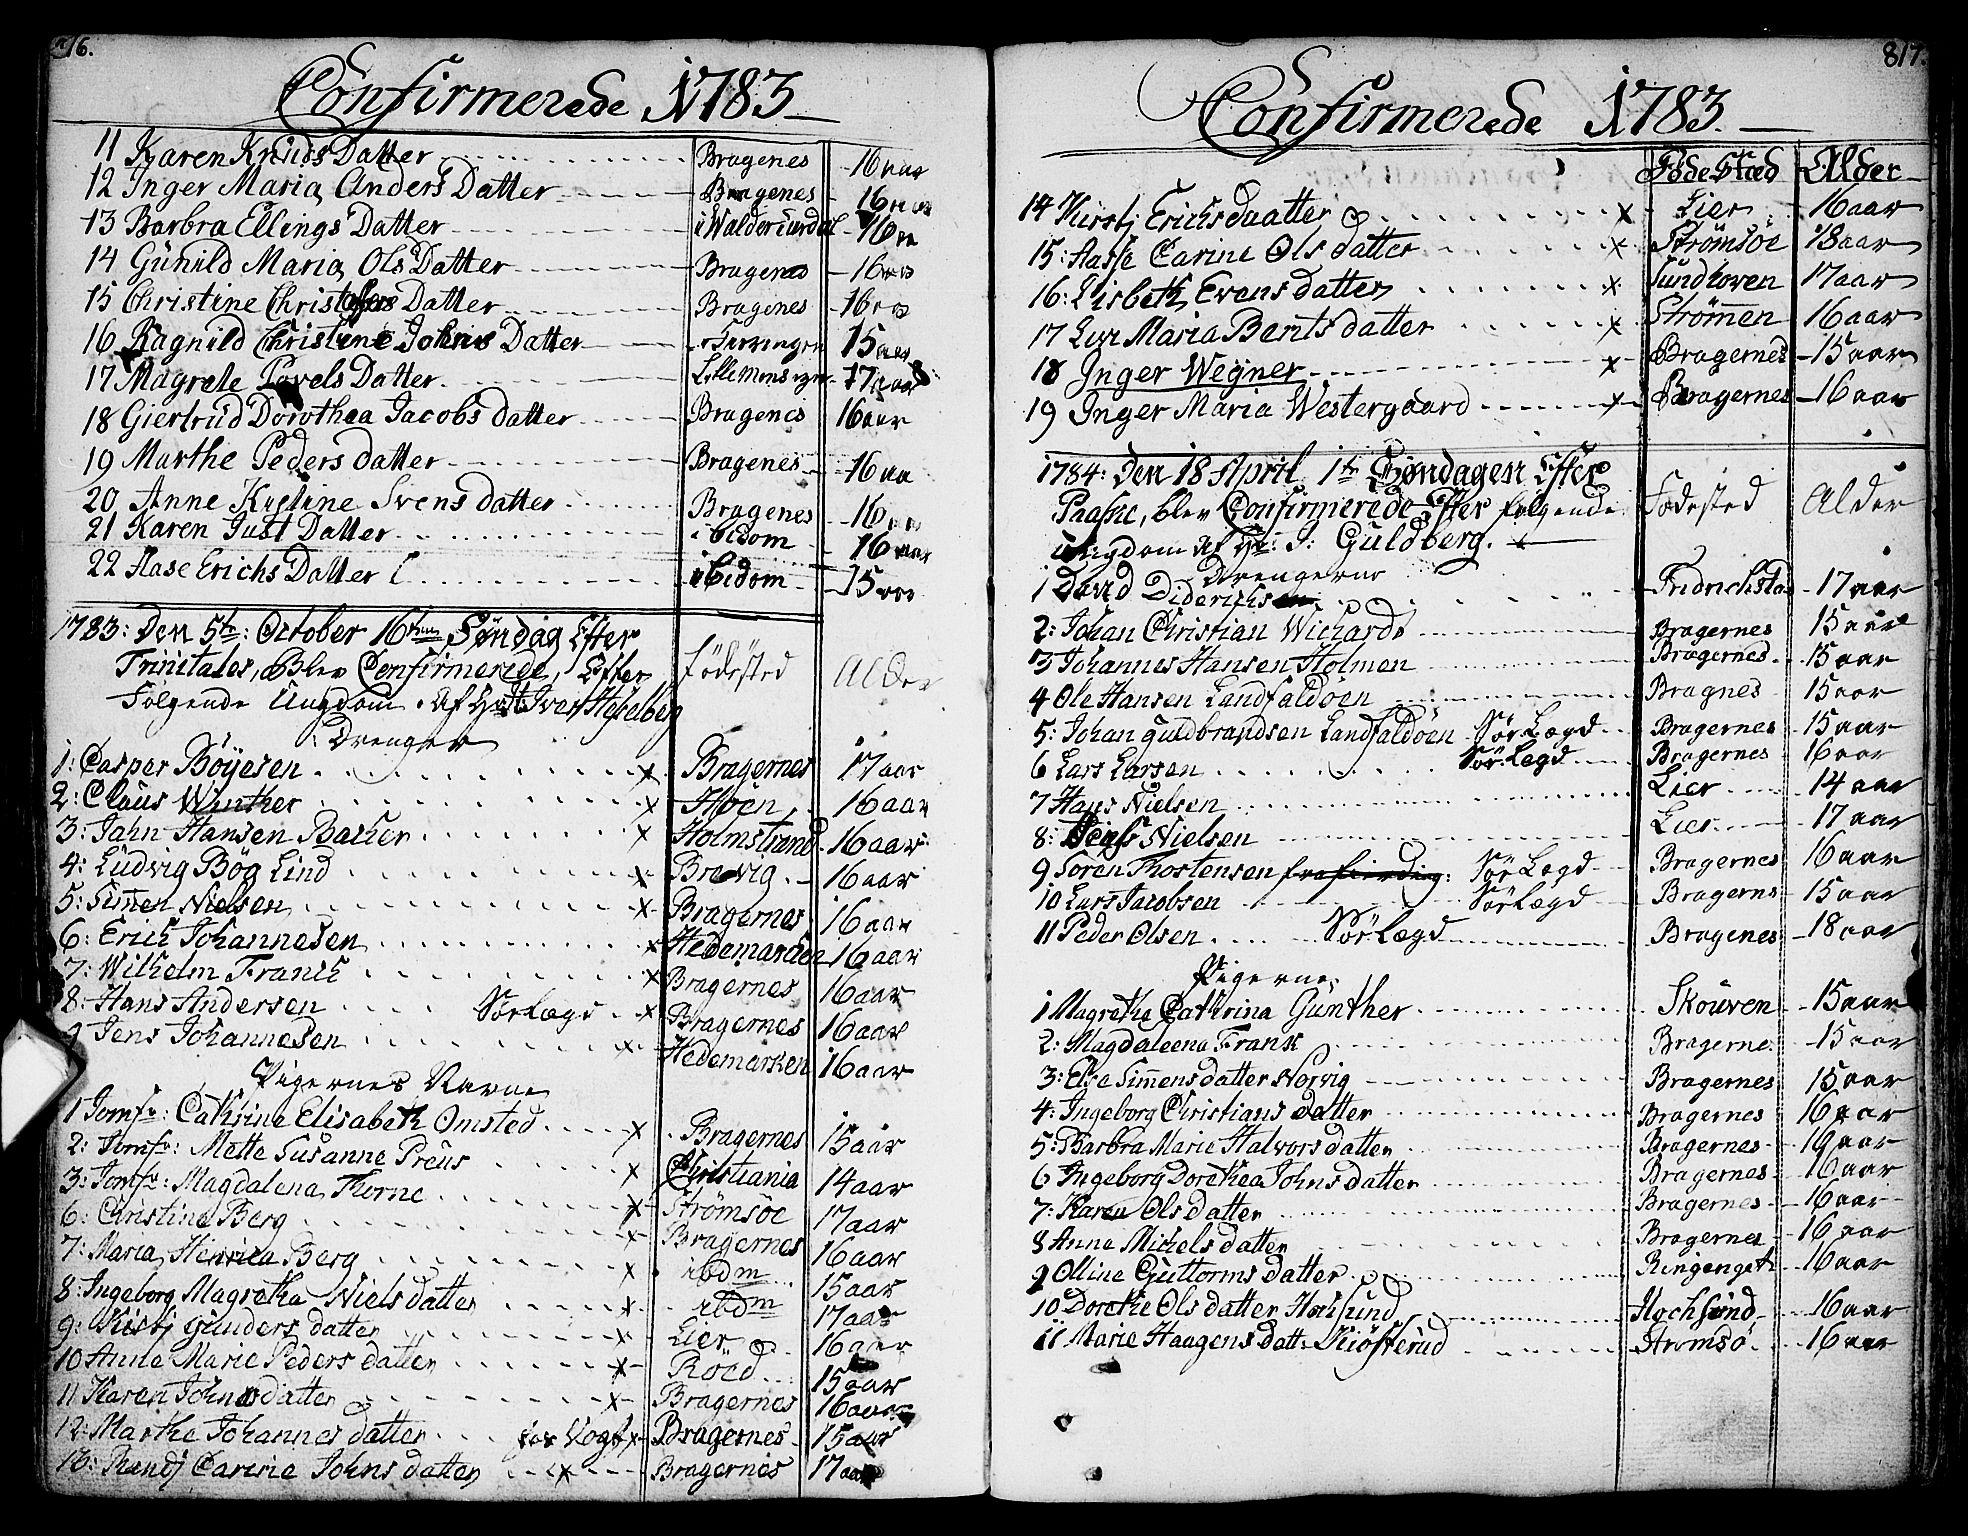 Confirmerede 1783
11 Karen Knuds Datter Bragenes 16 aar
12 Inger Maria Anders Datter Bragenes 16
13 Barbra Ellings Datter 16
14 Gunild Maria Ols Datter Bragenes 16
15 Christine Christophers Datter Bragenes 16
16 Ragnild Christine Johns Datter 15 aar
17 Magrete Povels Datter 17 aar
18 Giertrud Dorothea Jacobs datter Bragenes 16 aar
19 Marthe Peders datter Bragenes 16 aa
20 Anne Kirstine Svens datter Bragenes 16
21 Karen Just Datter ibidom 16 aar
22 Aase Erichs Datter ibidom 15
1783: Den 5te: October 16ten Søndag Efter
Trinitates, Blev Confirmerede, Efter Födested Alder
Følgende Ungdom Af Iver Heselberg
Drenger
1: Casper Böyesen x Bragernes 17 aar
2: Claus Winther x Höen 16 aar
3: Jahn Hansen Backer x Holmstrand 16 aar
4: Ludvig Bög Lind x Brevig 16 aar
5: Simen Nielsen x Bragernes 16 aar
6: Erich Johannesen x Hedemarcken 16 aar
7: Wilhelm Franck x Bragernes 16 aar
8: Hans Andersen Sör Lægd x Bragernes 16 aar
9 Jens Johannesen x Hedemarken 16 aar
Pigernes Navne
1 Jomfr: Cathrine Elisabeth Omsted x Bragernes 15 aar
2: Jomfr: Mette Susanne Preus x Christiania 14 aar
3: Jomfr: Magdalena Thorne x Strömsöe 17 aar
6: Christine Berg x Bragernes 16 aar
7: Maria Henrica Berg x ibdm 15 aar
8: Ingeborg Magretha Niels datter x ibdm 17 aar
9: Kirstj Gunders datter x Lier 16 aar
10 Anne Marie Peders datter x Röed 15 aar
11 Karen Johns datter x Bragernes 16 aar
12: Marthe Johannes datter Vogt x Bragernes 15 aar
13: Randj Carine Johns datter x Bragernes 17 aar
817.
Confirmerede 1783.
Föde Stæd Alder
14 Kirstj Erichsdaatter x Lier 16 aar
15: Aasse Carine Ols datter x Strömsöe 18 aar
16: Lisbeth Evens datter x Sundhoven 17 aar
17 Maria Bents datter x Strömen 16 aar
18 Inger Wegner x Bragernes 15 aar
19 Inger Maria Westergaard x Bragernes 16 aar
1784: Den 18 April 1te Søndagen Efter
Paaske, blev Confirmerede Efter følgende Fødested Alder
Ungdom af Hr: J: Guldberg.
Drengerne
1 David Diderichsen Fridrichstad 17 aar
2: Johan Christian Wichards Bragernes 15 aar
3 Johannes Hansen Holmen Bragernes 15 aar
4 Ole Hansen Landfaldöen Bragnes 15 aar
5: Johan Guldbrandsen Landfaldöen Sör Lægd Bragernes 15 aar
6 Lars Larsen Sör Lægd Bragernes 16 aar
7 Hans Nielsen Lier 14 aar
8: Nielsen Lier 17 aar
9 Soren Thostensen Sör Lægd Bragernes 16 aar
10 Lars Jacobsen Sör Lægd Bragerns 15 aar
11 Peder Olsen Sör Lægd Bragenes 18 aar
Pigerne
1 Magrethe Cathrina Gunther Skouven 15 aar
2: Magdaleena Frank Bragerne. 15 aar
3: Else Simensdatter Norvig Bragernes 15 aar
4: Ingeborg Christians datter Bragernes 16 aar
5: Barbra Marie Halvors datter Bragernes 19 aar
6 Ingeborg Dorethea Johns datter Bragernes 16 aar
7: Karen Ols datter Bragernes 16 aar
8 Anna Michels datter Bragernes 16 aar
9 Oline Guttorms datter 16 aar
10 Dorethe Ols datter Hocksund Hochsund 16 aar
11 Marie Haagens datt: Kiösterud Strømsö 16 aar